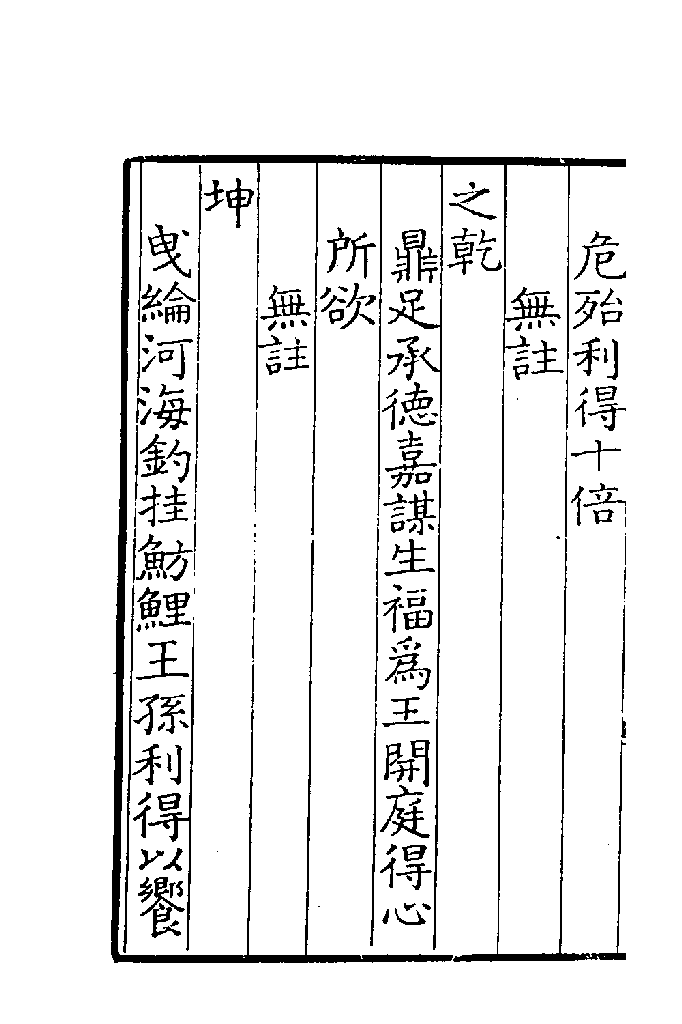 危殆利得十倍
無註
之乾
鼎足承德嘉謀生福爲王開庭得心
所欲
無註
坤
曵綸河海釣挂魴鯉王孫利得以饗